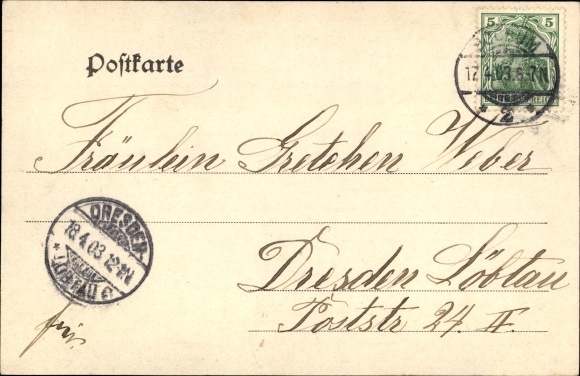 Postkarte
5 5
17.4.03.6-7N
* 2 *
Fräulein Gretchen Weber
DRESDEN
18.4.03.12-1N
LÖBTAU
Dresden Löbtau
Poststr 24. II.